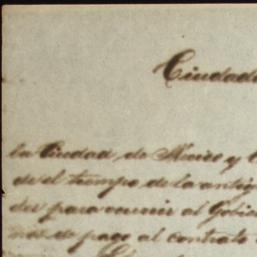 Ciudada
la Ciudad de Mexico y
de el tiempo de la antig
des para reunir al Gobie
de pago al contrato